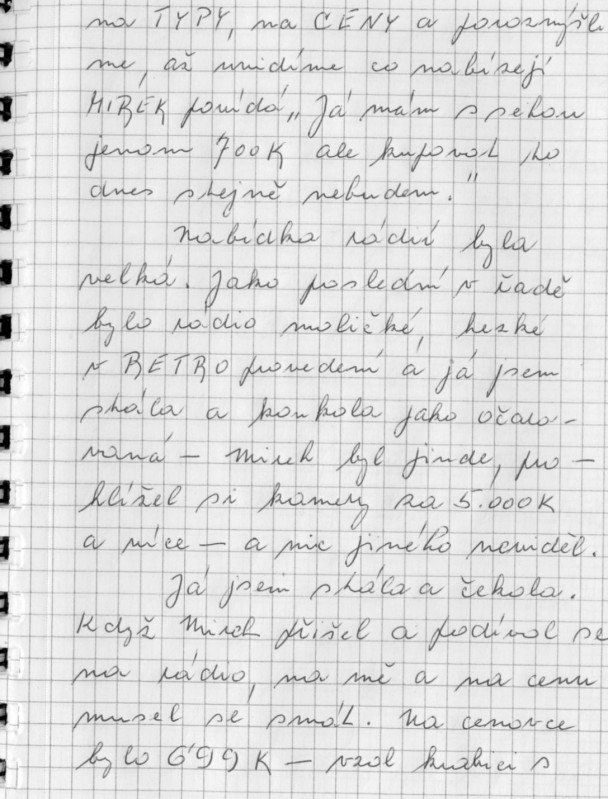 na TYPY, na CENY a porozmýšlí
me, až uvidíme co nabízejí
MIREK povídá „Já mám s sebou
jenom 700K ale kupovat ho
dnes stejně nebudem."
Nabídka rádií byla
velká. Jako poslední v řadě
bylo rádio maličké, hezké
v RETRO provedení a já jsem
stála a koukala jako očaro-
vaná – Mirek byl jinde, pro-
hlížel si kamery za 5.000K
a více – a nic jiného neviděl.
Já jsem stála a čekala.
Když Mirek přišel a podíval se
na rádio, na mě a na cenu
musel se smát. Na cenovce
bylo 699K – vzal krabici s